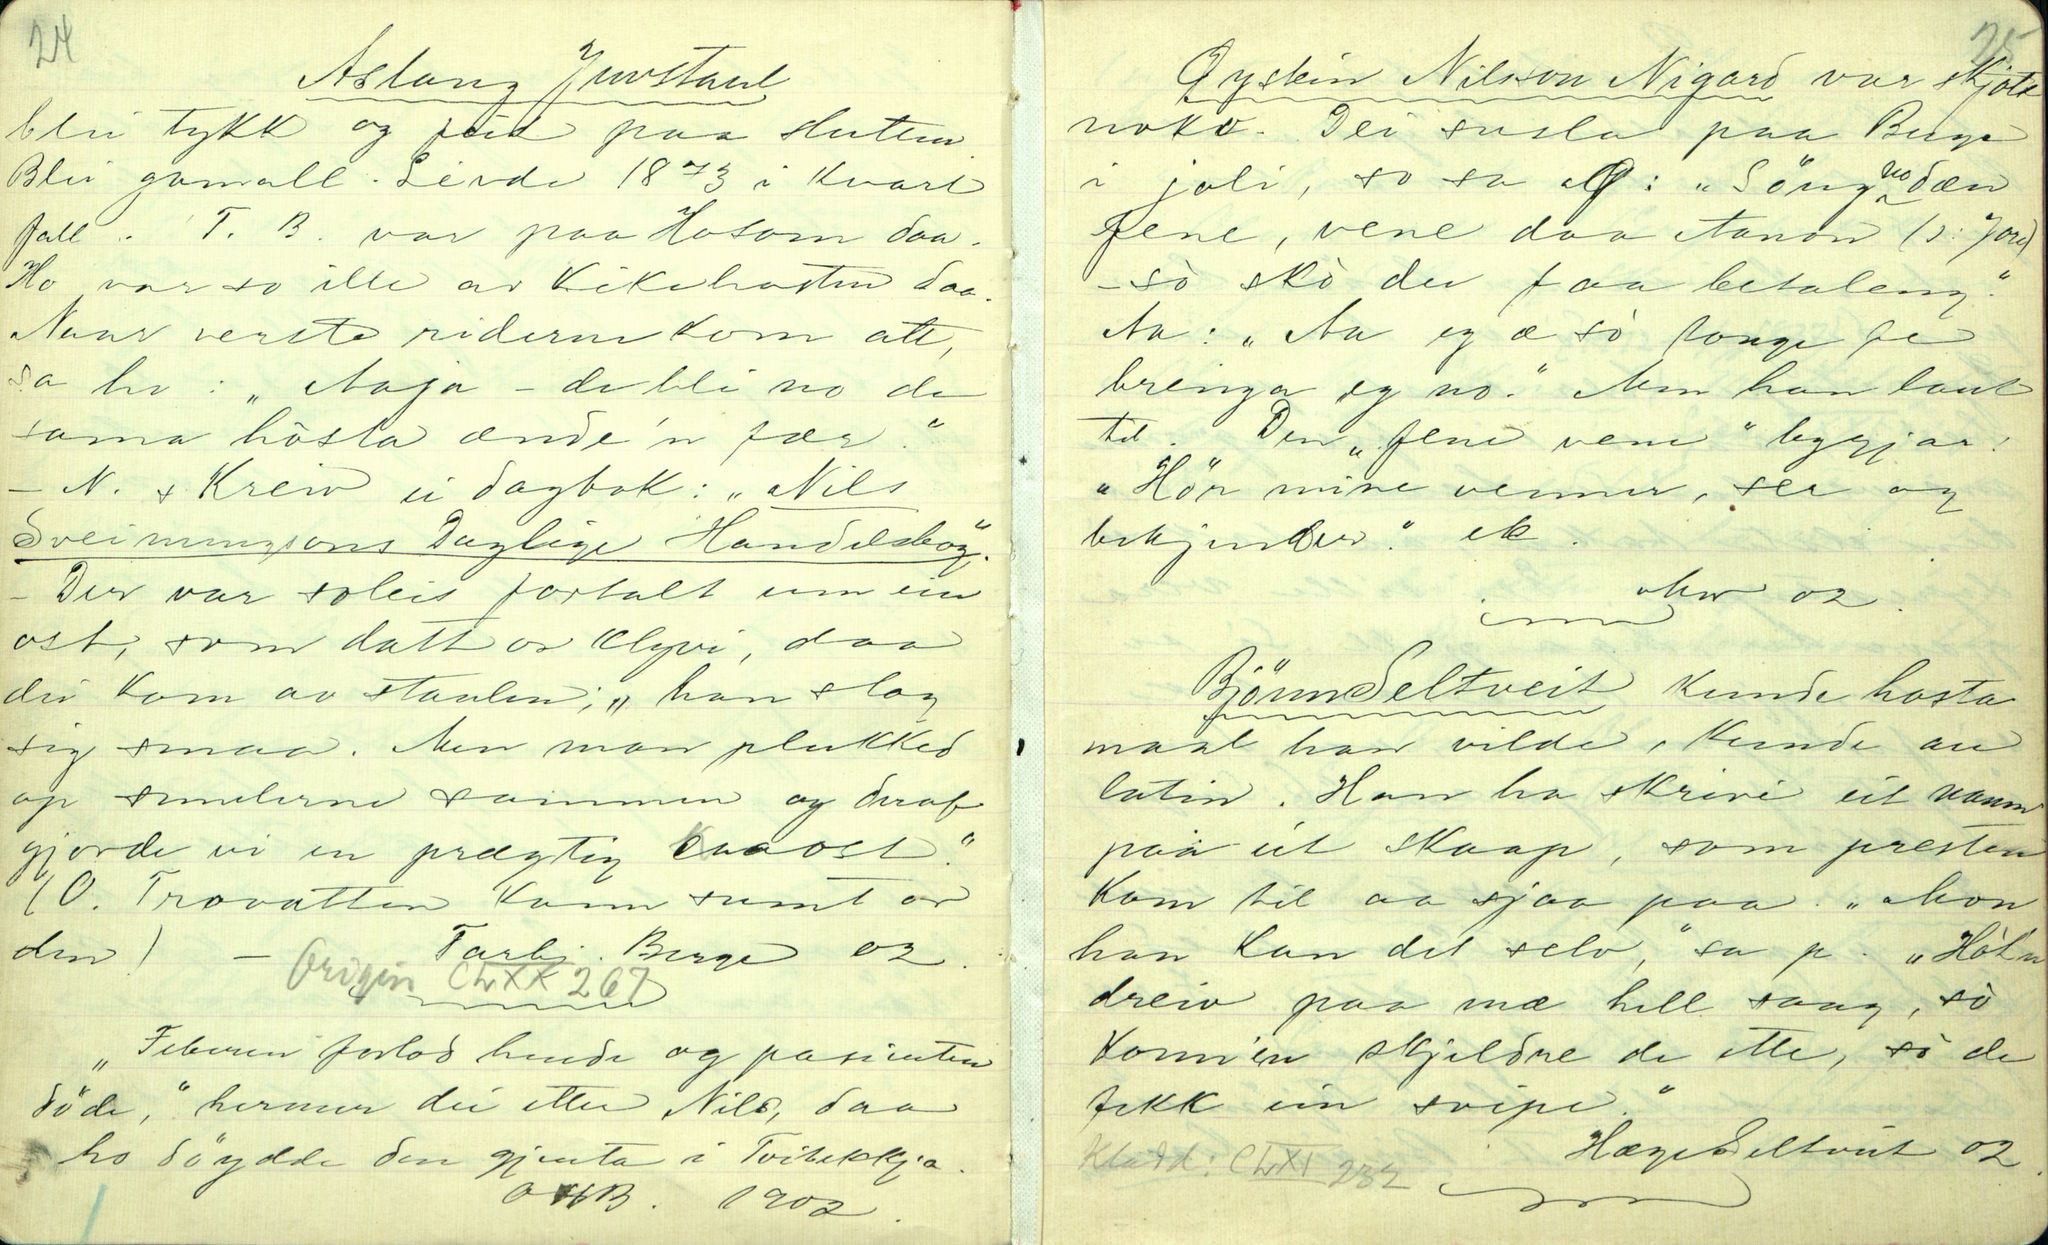 24
Aslaug Juvstaul
blei tykk og feid paa slutten.
Blei gamall. Levde 1873 i kvart
fall. T. B. var paa Hosom daa.
Ho var so ille av kikehosten daa.
Naar verste riderne kom att,
sa ho: „Aaja – de bli no de
sama hòsta ænde'n fær."
– N. skreiv ei dagbok: „Nils
Sveinungsons Daglige Handelsbog".
– Der var soleis fortalt um ein
ost, som datt or klyvi, daa
dei kom av staulen; „han slog
sig smaa. Men man plukked
op smulerne sammen og deraf
gjorde vi en prægtig Knaost."
(O. Trovatten kann sumt or
den) – Tarbj. Berge 02.
Origin CLXX 267
„Feberen forlod hende og pasienten
döde," hermer dei etter Nils, daa
ho döydde den gjenta i Tvitekkja.
OHB. 1902.
25
Öystein Nilsson Nigard var skjote
noko. Dei susla paa Berge
i joli, so sa Ö: „Söng no dæn
fene, vene daa Aanon (o: Jore)
– sò skò du faa betaleng".
Aa: „Aa eg æ sò tonge fe
brenga eg no." Men han laut
til. Den „fene vene" byrjar:
„Hör mine venner, ser og
bekjender." etc.
Mor 02.
Björn Seltveit kunde hosta
maal han vilde, kunde au
latin. Han ha skrive eit namn
paa eit skaap, som presten
kom til aa sjaa paa. „Mon
han kan det selv," sa p. „Höl'n
dreiv paa mæ hell saag, sò
konn'en skjeldre de ette, sò de
fekk ein svipe."
Hæge Seltveit 02.
Kladd: CLXI 232